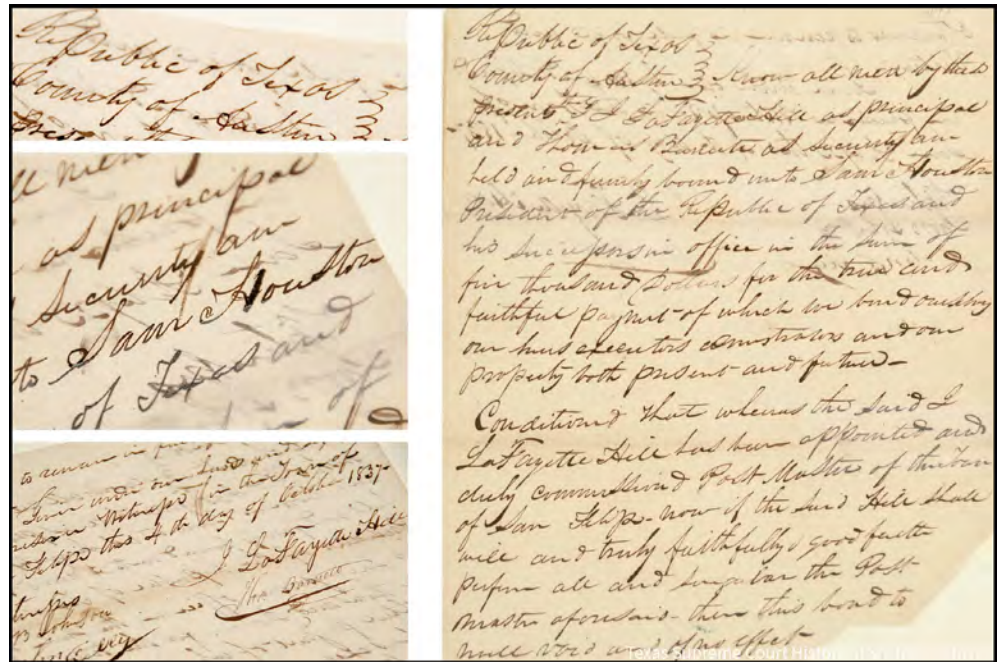 Republic of Texas
County of Austin
as principal
Security am
to Sam Houston
of Texas and
of
to remain in
Given under our hands and
Witness in the Town of
Felipe this 4th day of October 1837
J LaFayette Hill
Thos Barnett
Johnson
Republic of Texas
County of Austin Know all men by these
Presents I J LaFayette Hill as principal
and Thomas as Security am
held and firmly bound unto Sam Houston
President of the Republic of Texas and
his successors in office in the sum of
five thousand Dollars for the true and
faithful payment of which we bind ourselves
our heirs executors and our
property both present and future—
Conditioned that whereas the said J
LaFayette Hill has been appointed and
duly commissioned Post Master of the Town
of San Felipe now if the said Hill shall
well and truly faithfully good faith
perform all and singular the Post
master aforesaid then this bond to
null void and of no effect
Texas Supreme Court Historical Society